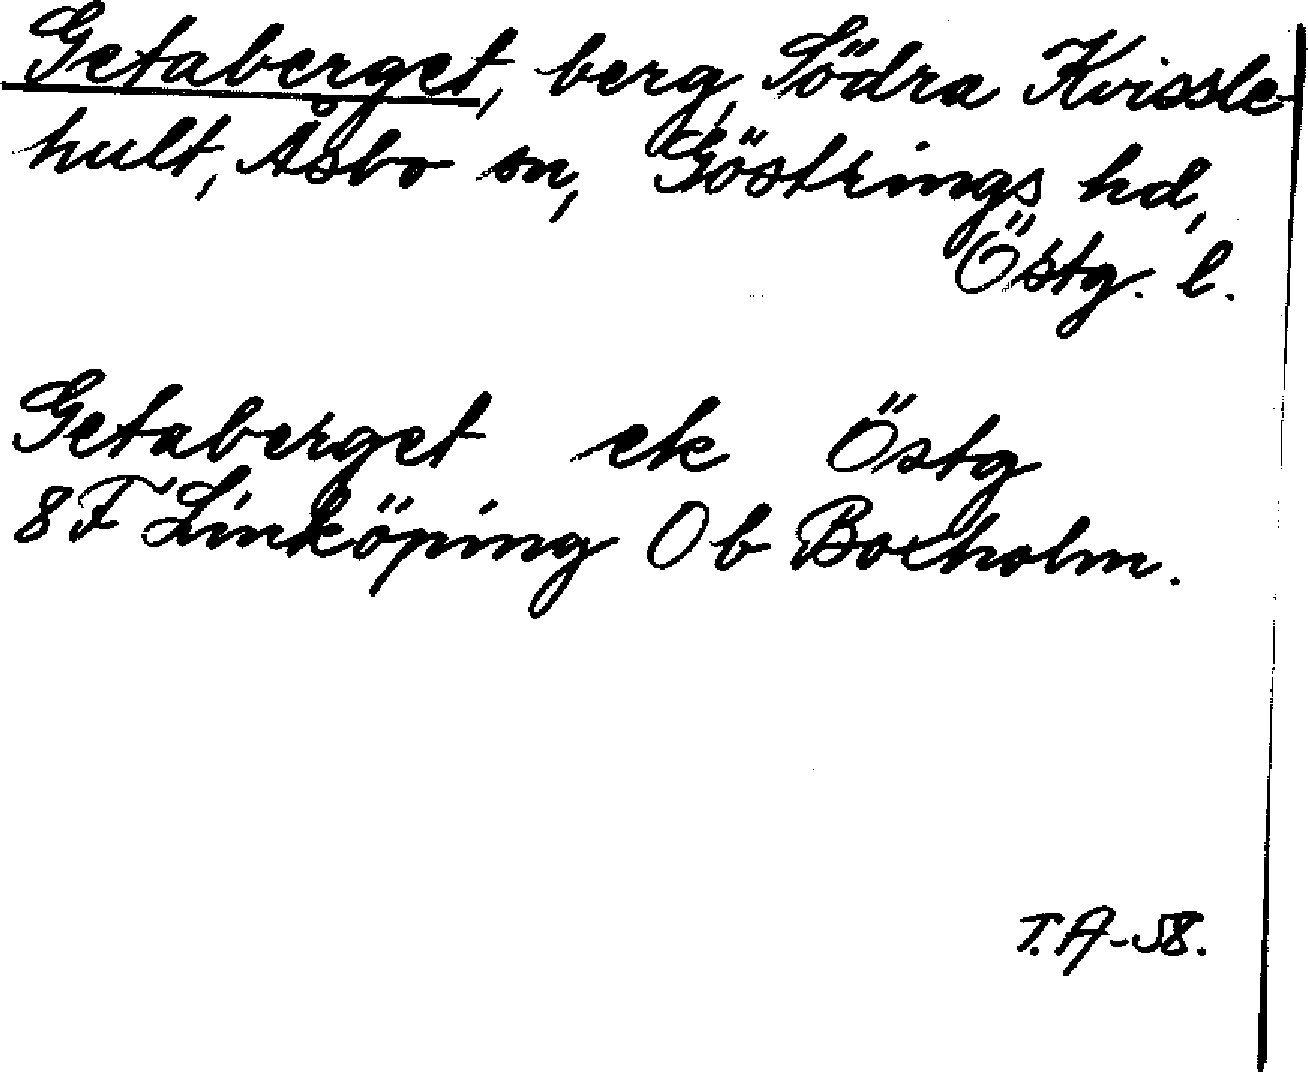 Getaberget, berg, Södra Kvissle-
hult, Åsbo sn, Göstrings hd,
Östg. l.
Getaberget ek Östg
8F Linköping 0b Boxholm.
T.A-58.